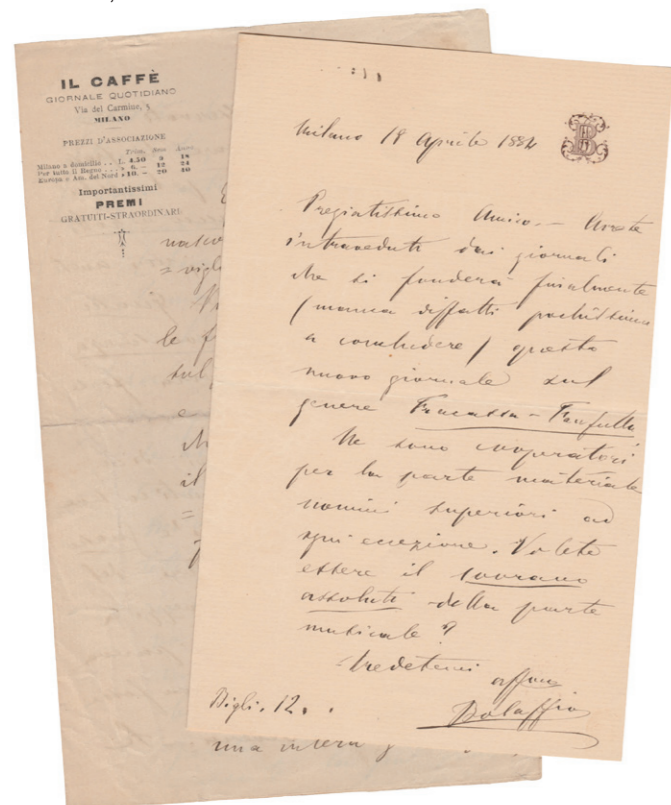 IL CAFFÈ
GIORNALE QUOTIDIANO
Via del Carmine, 5
MILANO
PREZZI D'ASSOCIAZIONE
Trim. Sem. Anno
Milano a domicilio . . L. 4.50 9 18
Per tutto il Regno . . . » 6.— 12 24
Europa e Am. del Nord » 10.— 20 40
Importantissimi
PREMI
GRATUITI-STRAORDINARI
nasco
= vigli
le f
sul
e
il
una intera
Milano 18 Aprile 1884
Pregiatissimo Amico. — Avrete
intraveduto dai giornali
che si fonderà finalmente
(manca diffatti pochissimo
a conchidere) questo
nuovo giornale sul
genere Fracassa - Fanfulla
Ne sono cooperatori
per la parte materiale
uomini superiori ad
ogni eccezione. Volete
essere il sovrano
assoluto della parte
musicale?
Credetemi
affmo
Bolaffio
Bigli. 12.